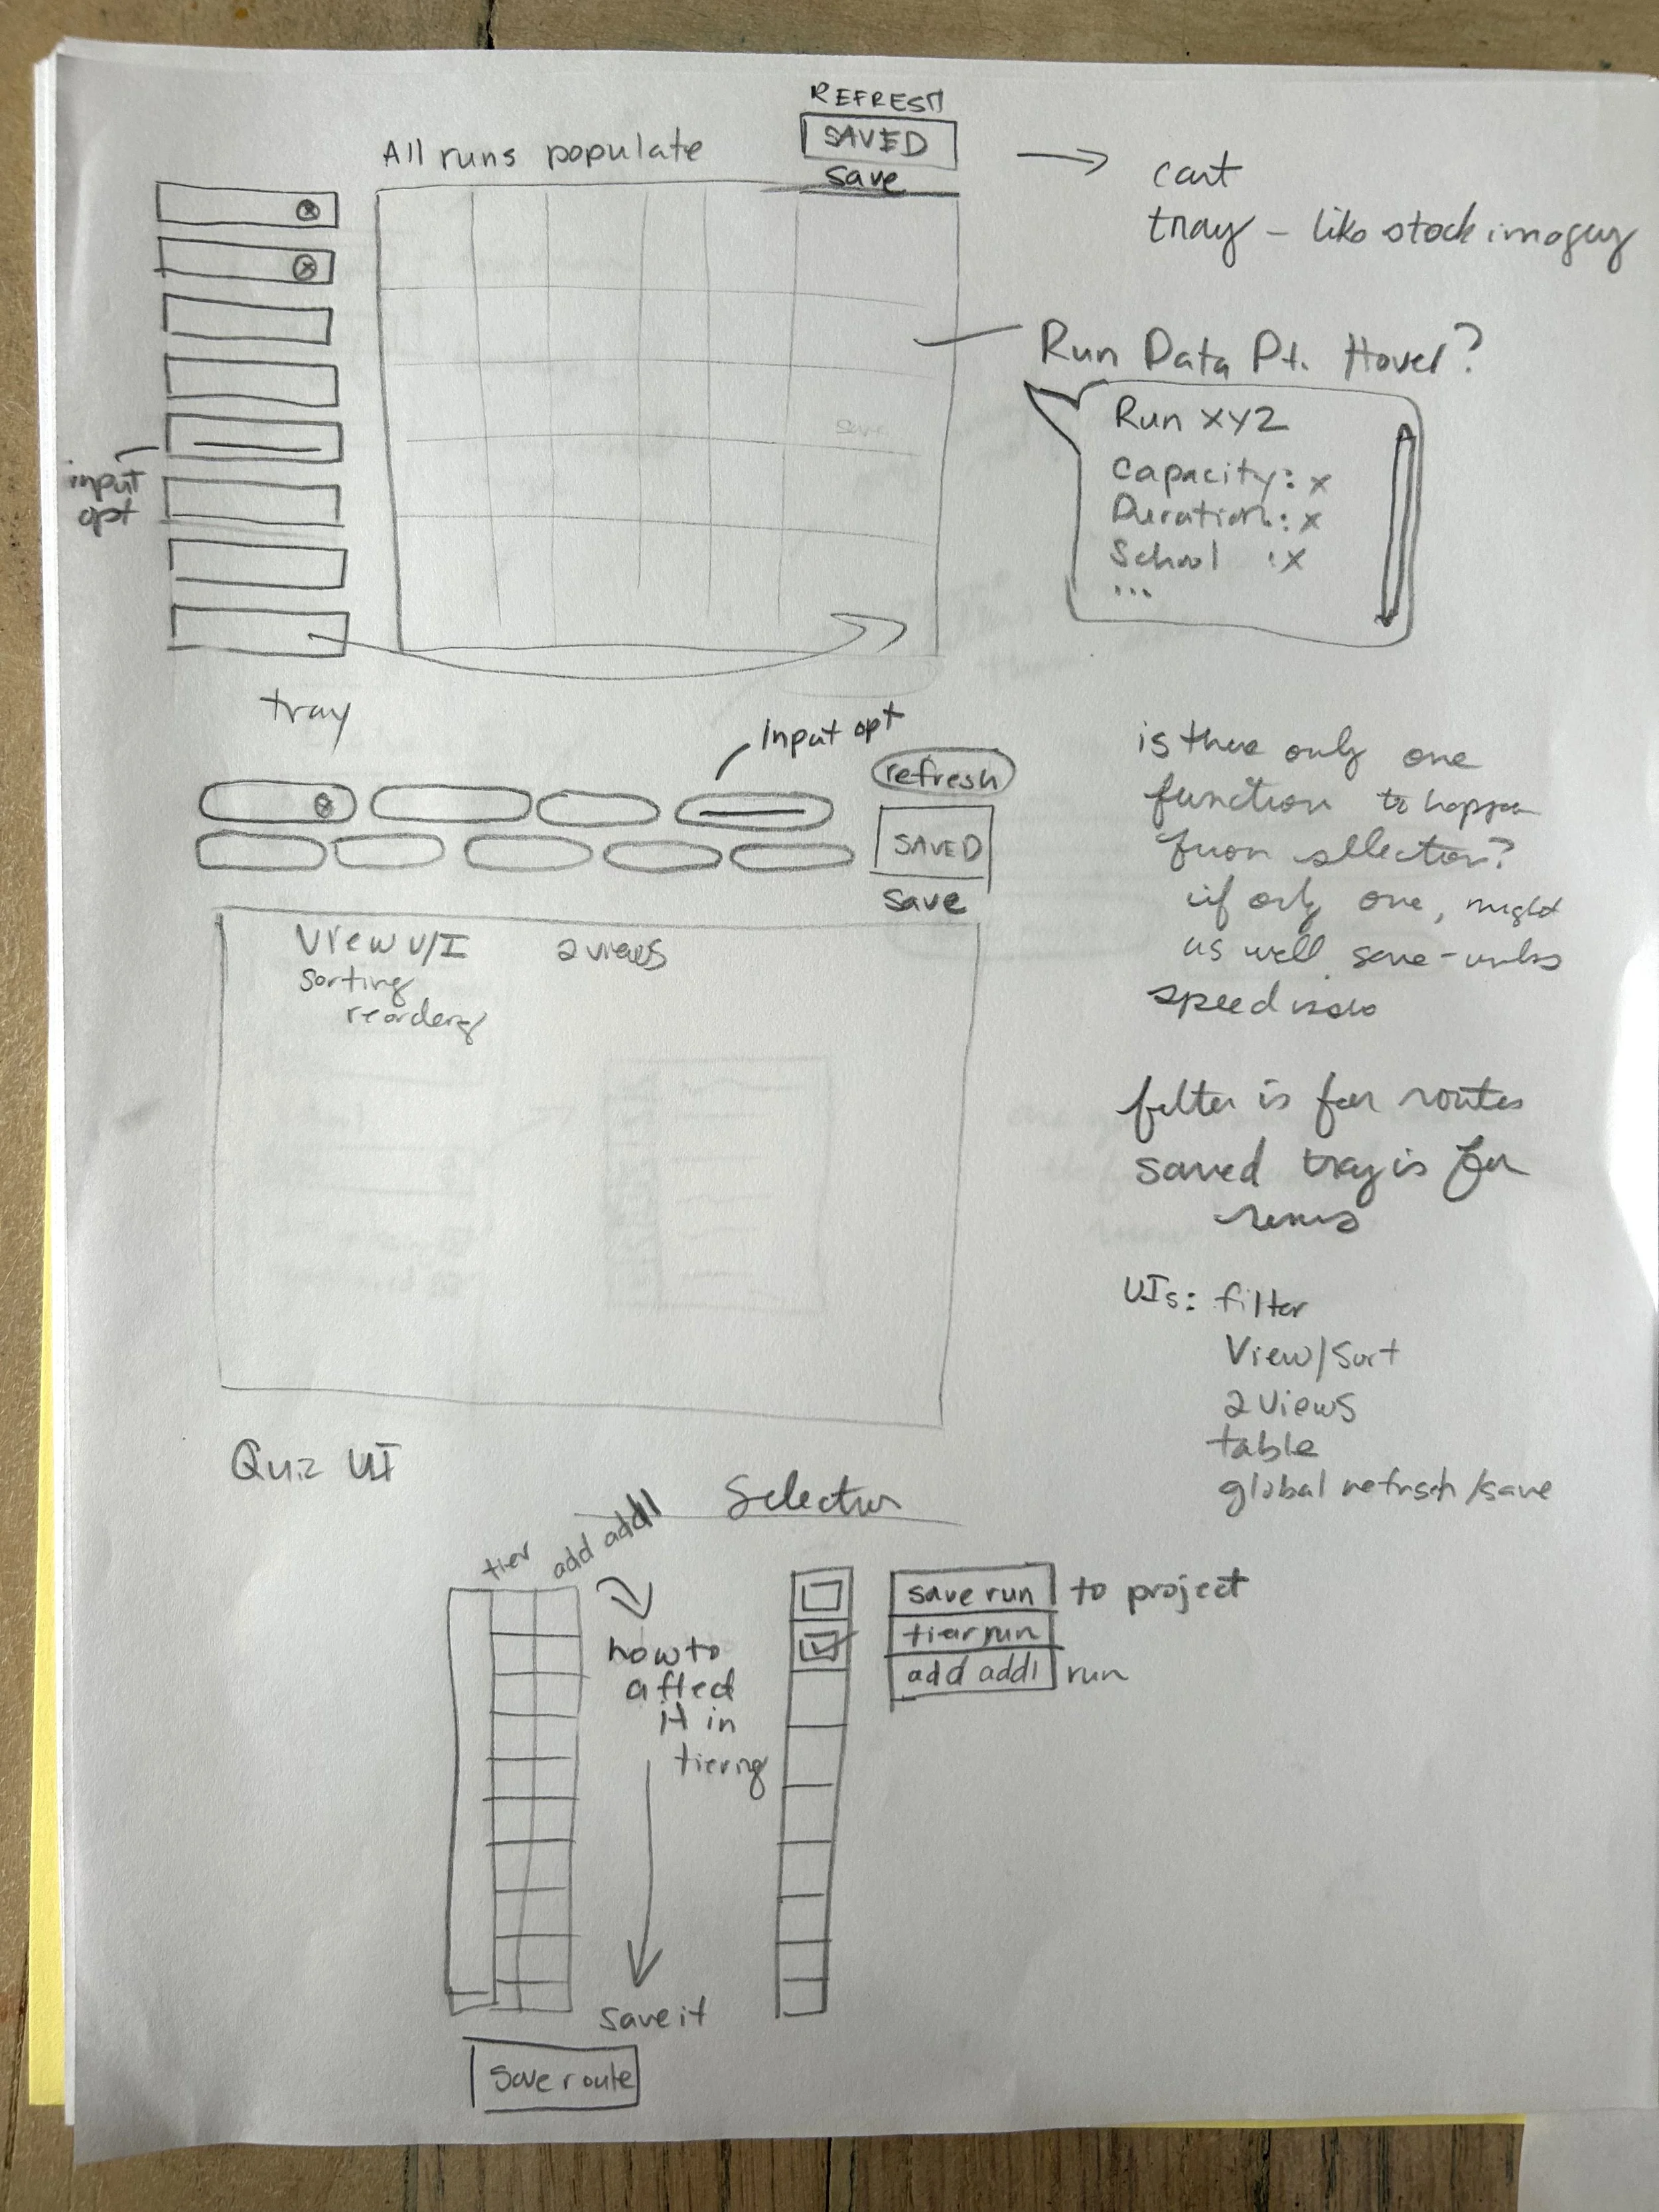 REFRESH
SAVED
save
All runs populate
cart
tray – like stock imagery
Run Data Pt. Hover?
Run XYZ
Capacity: x
Duration: x
School : x
...
input
opt
save
tray
input opt
refresh
SAVED
save
View U/I 2 views
sorting
reorderg
is there only one
function to happen
from selection?
if only one, might
as well save – unless
speed issue
filter is for routes
saved tray is for
runs
UIs: filter
View/Sort
2 views
table
global refresh/save
Quiz UI
Selection
tier add add'l
how to
affect
it in
tiering
save it
save route
save run to project
tier run
add add'l run